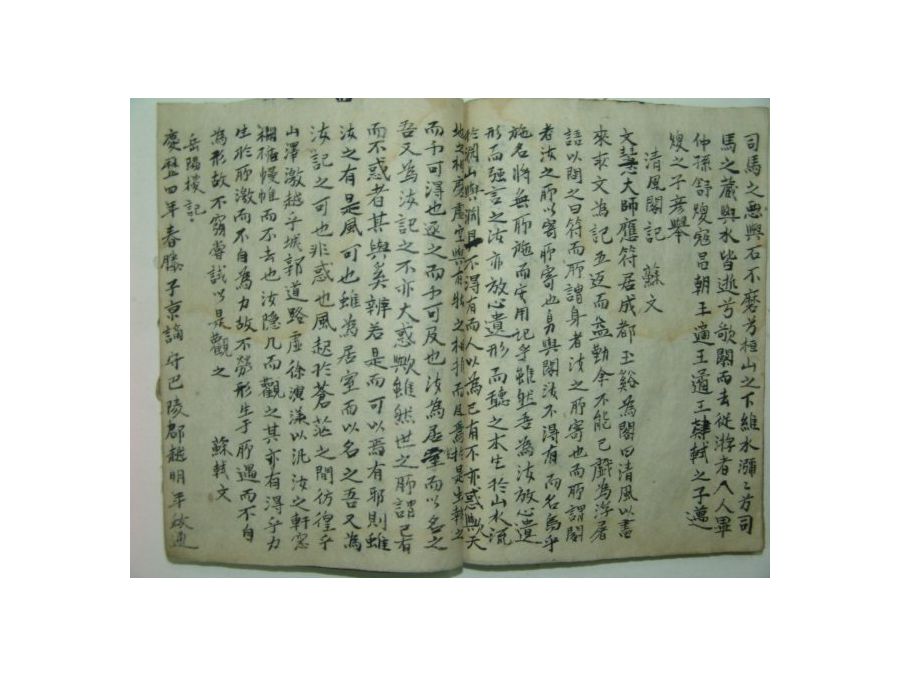 司馬之惡與石不磨兮桓山之下維水瀰〻兮司
馬之藏與水皆逝兮歌闋而去從游者八人畢
仲孫舒煥寇昌朝王適王遹王肄軾之子邁
煥之子彥舉
清風閣記 蘇文
文慧大師應符居成都玉谿為閣曰清風以書
來求文為記五返而益勤余不能已戲為浮屠
語以問之曰符而所謂身者汝之所寄也而所謂閣
者汝之所以寄所寄也身與閣汝不得有而名烏乎
施名將無所施而安用記乎雖然吾為汝放心遺
形而強言之汝亦放心遺形而聽之木生於山水流
於淵山與淵且不得有而人以為己有不亦惑歟天
地之相磨虛空與有物之相推而風於是生執之
而不可得也逐之而不可及也汝為居室而以名之
吾又為汝記之不亦大惑歟雖然世之所謂己有
而不惑者其與奚辨若是而可以為有耶則雖
汝之有是風可也雖為居室而以名之吾又為
汝記之可也非惑也風起於蒼茫之間彷徨乎
山澤激越乎城郭道路虛徐演漾以汎汝之軒窓
欄楯幔帷而不去也汝隱几而觀之其亦有得乎力
生於所激而不自為力故不勞形生于所遇而不自
為形故不窮嘗試以是觀之 蘇軾文
岳陽樓記
慶曆四年春滕子京謫守巴陵郡越明年政通